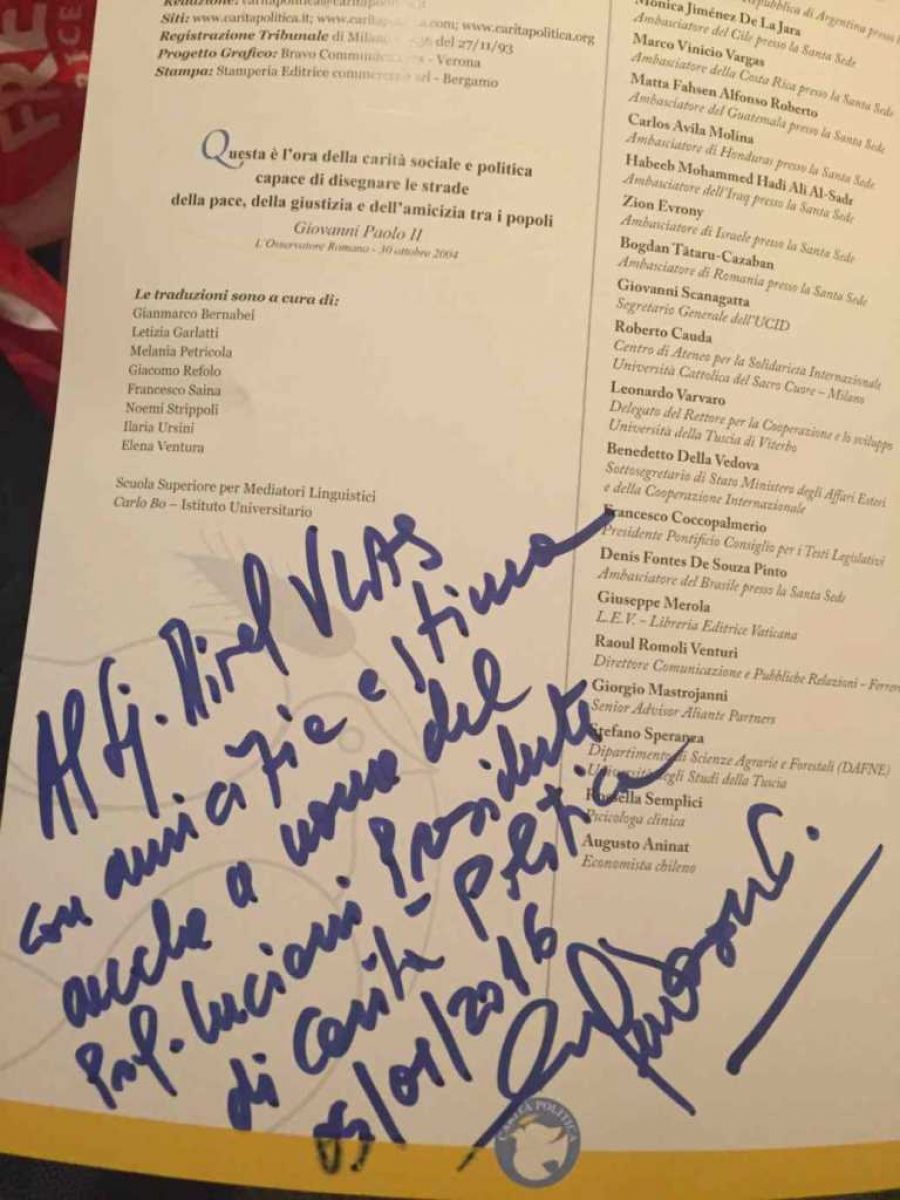 FRE
Redazione: caritapolitica@caritapolitica
Siti: www.caritapolitica.it; www.caritapolitica.com; www.caritapolitica.org
Registrazione Tribunale di Milano del 27/11/93
Progetto Grafico: Bravo - Verona
Stampa: Stamperia Editrice srl - Bergamo
Questa è l'ora della carità sociale e politica
capace di disegnare le strade
della pace, della giustizia e dell'amicizia tra i popoli
Giovanni Paolo II
L'Osservatore Romano - 30 ottobre 2004
Le traduzioni sono a cura di:
Gianmarco Bernabei
Letizia Garlatti
Melania Petricola
Giacomo Refolo
Francesco Saina
Noemi Strippoli
Ilaria Ursini
Elena Ventura
Scuola Superiore per Mediatori Linguistici
Carlo Bo – Istituto Universitario
Repubblica di Argentina presso
Monica Jiménez De La Jara
Ambasciatore del Cile presso la Santa Sede
Marco Vinicio Vargas
Ambasciatore della Costa Rica presso la Santa Sede
Matta Fahsen Alfonso Roberto
Ambasciatore del Guatemala presso la Santa Sede
Carlos Avila Molina
Ambasciatore di Honduras presso la Santa Sede
Habeeb Mohammed Hadi Ali Al-Sadr
Ambasciatore dell'Iraq presso la Santa Sede
Zion Evrony
Ambasciatore di Israele presso la Santa Sede
Bogdan Tătaru-Cazaban
Ambasciatore di Romania presso la Santa Sede
Giovanni Scanagatta
Segretario Generale dell'UCID
Roberto Cauda
Centro di Ateneo per la Solidarietà Internazionale
Università Cattolica del Sacro Cuore – Milano
Leonardo Varvaro
Delegato del Rettore per la Cooperazione e lo sviluppo
Università della Tuscia di Viterbo
Benedetto Della Vedova
Sottosegretario di Stato Ministero degli Affari Esteri
e della Cooperazione Internazionale
Francesco Coccopalmerio
Presidente Pontificio Consiglio per i Testi Legislativi
Denis Fontes De Souza Pinto
Ambasciatore del Brasile presso la Santa Sede
Giuseppe Merola
L.E.V. - Libreria Editrice Vaticana
Raoul Romoli Venturi
Direttore Comunicazione e Pubbliche Relazioni - Ferrero
Giorgio Mastrojanni
Senior Advisor Aliante Partners
Stefano Speranza
Dipartimento di Scienze Agrarie e Forestali (DAFNE)
Università degli Studi della Tuscia
Rossella Semplici
Psicologa clinica
Augusto Aninat
Economista cileno
Al Sg. Mirel VLAS
con amicizia e stima
anche a nome del
Prof. Luciani Presidente
di Carità Politica
05/01/2016
CARITÀ POLITICA